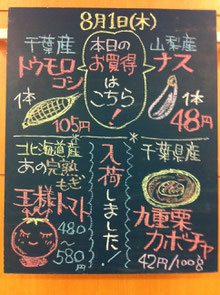 8月1日(木)
千葉産
トウモロコシ
1本
105円
本日の
お買得
は
こちら!
山梨産
ナス
1本
48円
北海道産
あの完熟
もぎ
王様トマト
480〜
580円
入荷しました!
千葉県産
九重栗
カボチャ
42円/100g